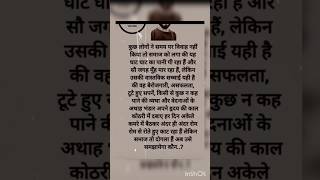 कुछ लोगों ने समय पर विवाह नहीं
किया तो समाज को लगा की यह
घाट घाट का पानी पी रहा हैं और
सौ जगह मुँह मार रहा हैं, लेकिन
उसकी वास्तविक सच्चाई यही है
की वह बेरोजगारी, असफलता,
टूटे हुए सपनें, किसी से कुछ न कह
पाने की व्यथा और वेदनाओं के
अथाह भंडार अपने हृदय की काल
कोठरी में दबाए हर दिन अकेले
कमरे में बैठकर अंदर ही अंदर रोम
रोम से रोते हुए काट रहा हैं लेकिन
समाज तो दोगला हैं अब उसे
समझायेगा कौन..?
InShOt